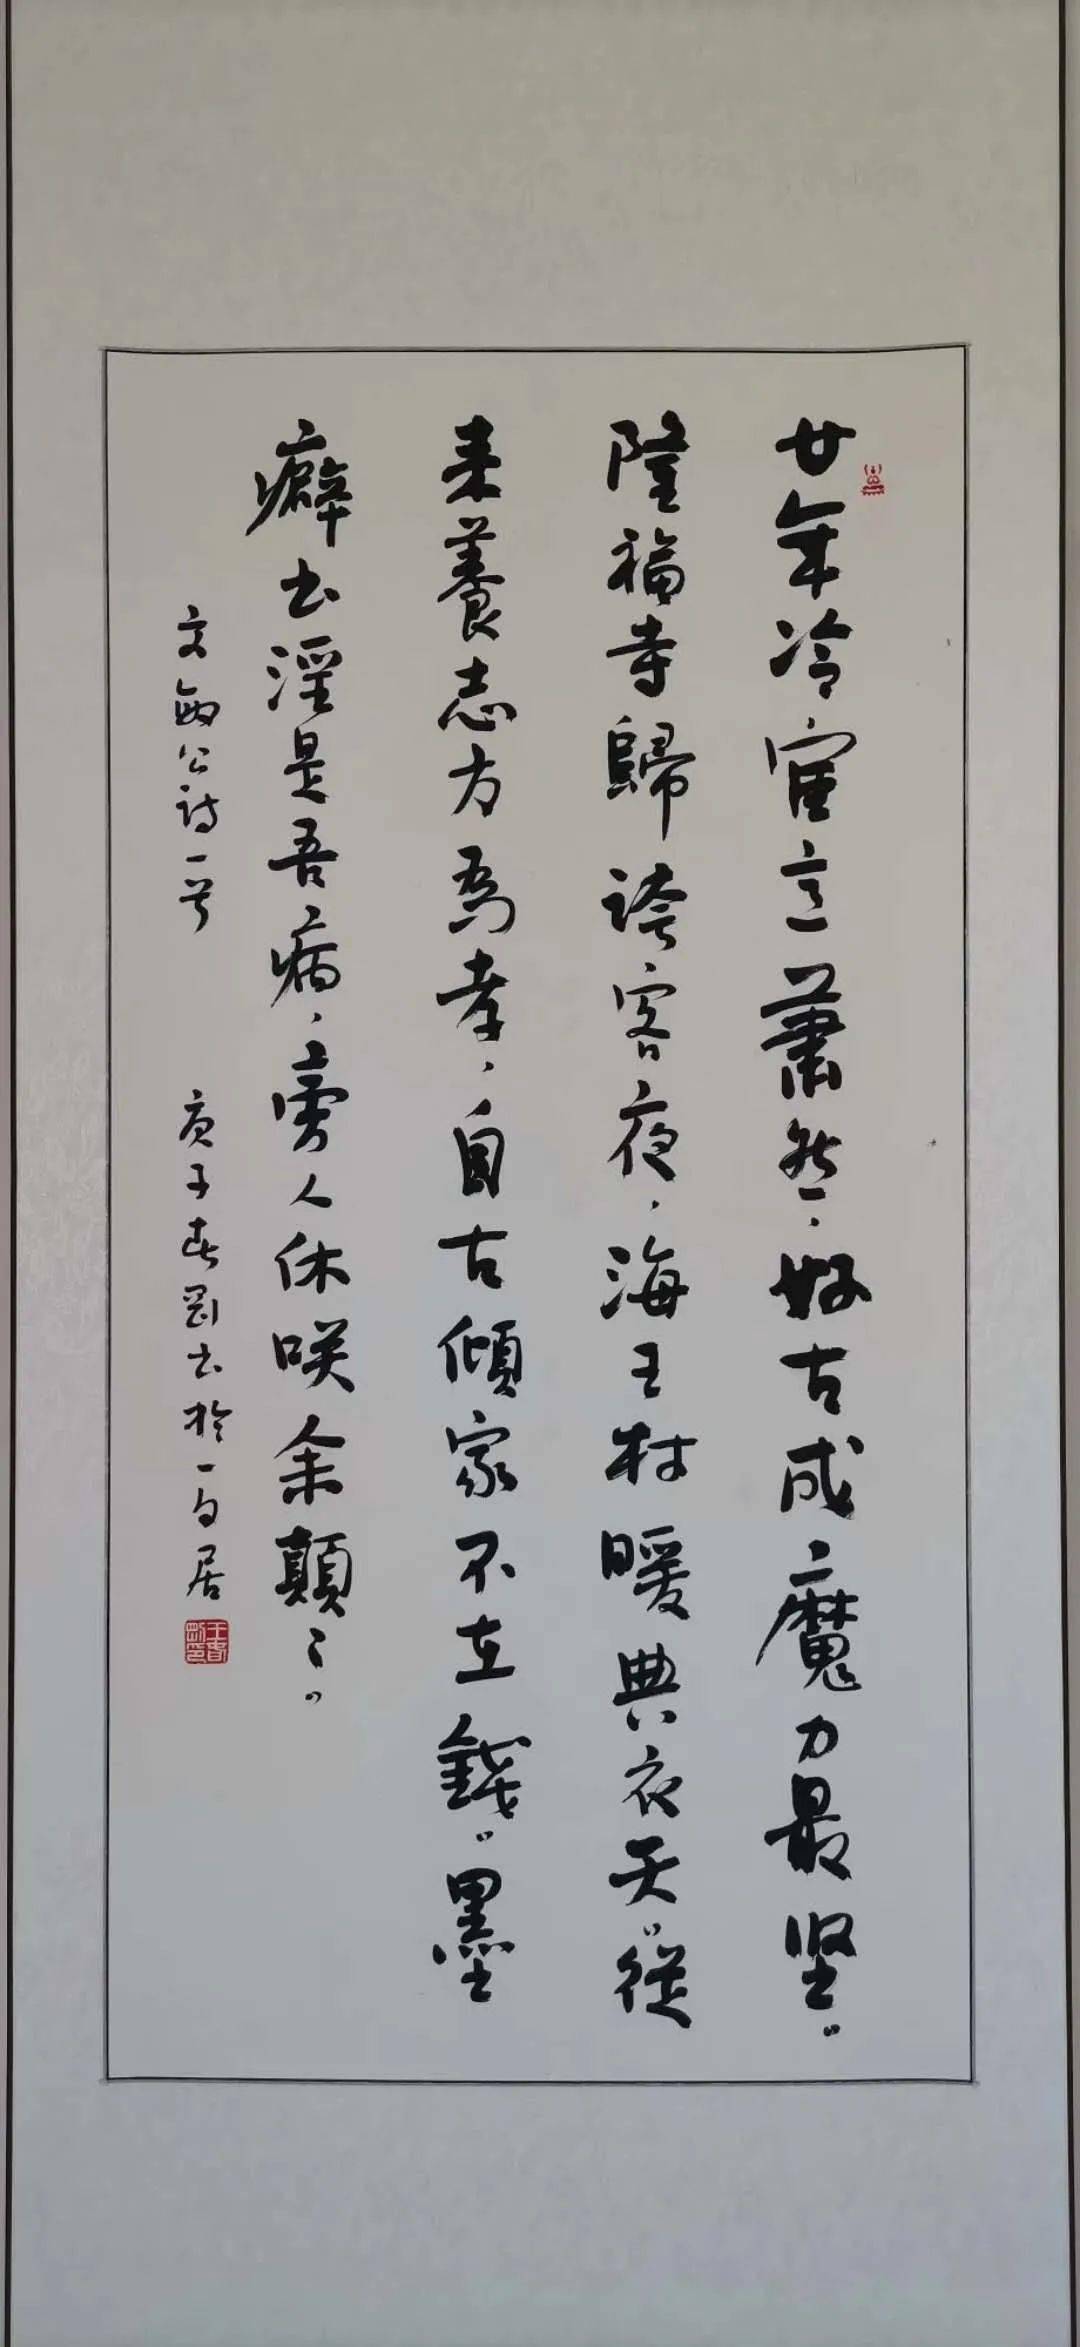 廿年冷宦意蕭然，好古成魔力最堅。
隆福寺歸誇客夜，海王村暖典衣天。從
来養志方爲孝，自古傾家不在錢。墨
癖书淫是吾病，旁人休咲余顛顛。
文敏公诗一首
庚子春刚书於一白居